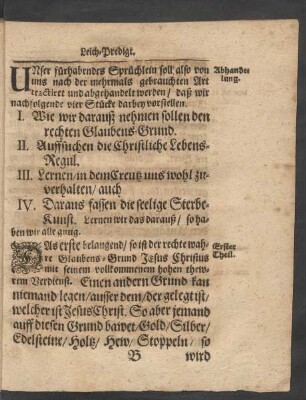 Leich-Predigt.
UNser fürhabendes Sprüchlein soll also von
uns nach der mehrmals gebrauchten Art
tractiret und abgehandelt werden / daß wir
nachfolgende vier Stücke darbey vorstellen.
Abhande
lung.
I. Wie wir darauß nehmen sollen den
rechten Glaubens-Grund.
II. Auffsuchen die Christliche Lebens-
Regul.
III. Lernen / in dem Creutz uns wohl zu-
verhalten / auch
IV. Daraus fassen die seelige Sterbe-
Kunst. Lernen wir das darauß / so ha-
ben wir alle gnug.
DAs erste belangend / so ist der rechte wah-
re Glaubens-Grund JEsus Christus
mit seinem vollkommenem hohen thew-
rem Verdienst. Einen andern Grund kan
niemand legen / ausser dem / der gelegt ist /
welcher ist JEsus Christ. So aber jemand
auff diesen Grund bawet / Gold / Silber /
Edelsteine / Holtz / Hew / Stoppeln / so
Erster
Theil.
B wird